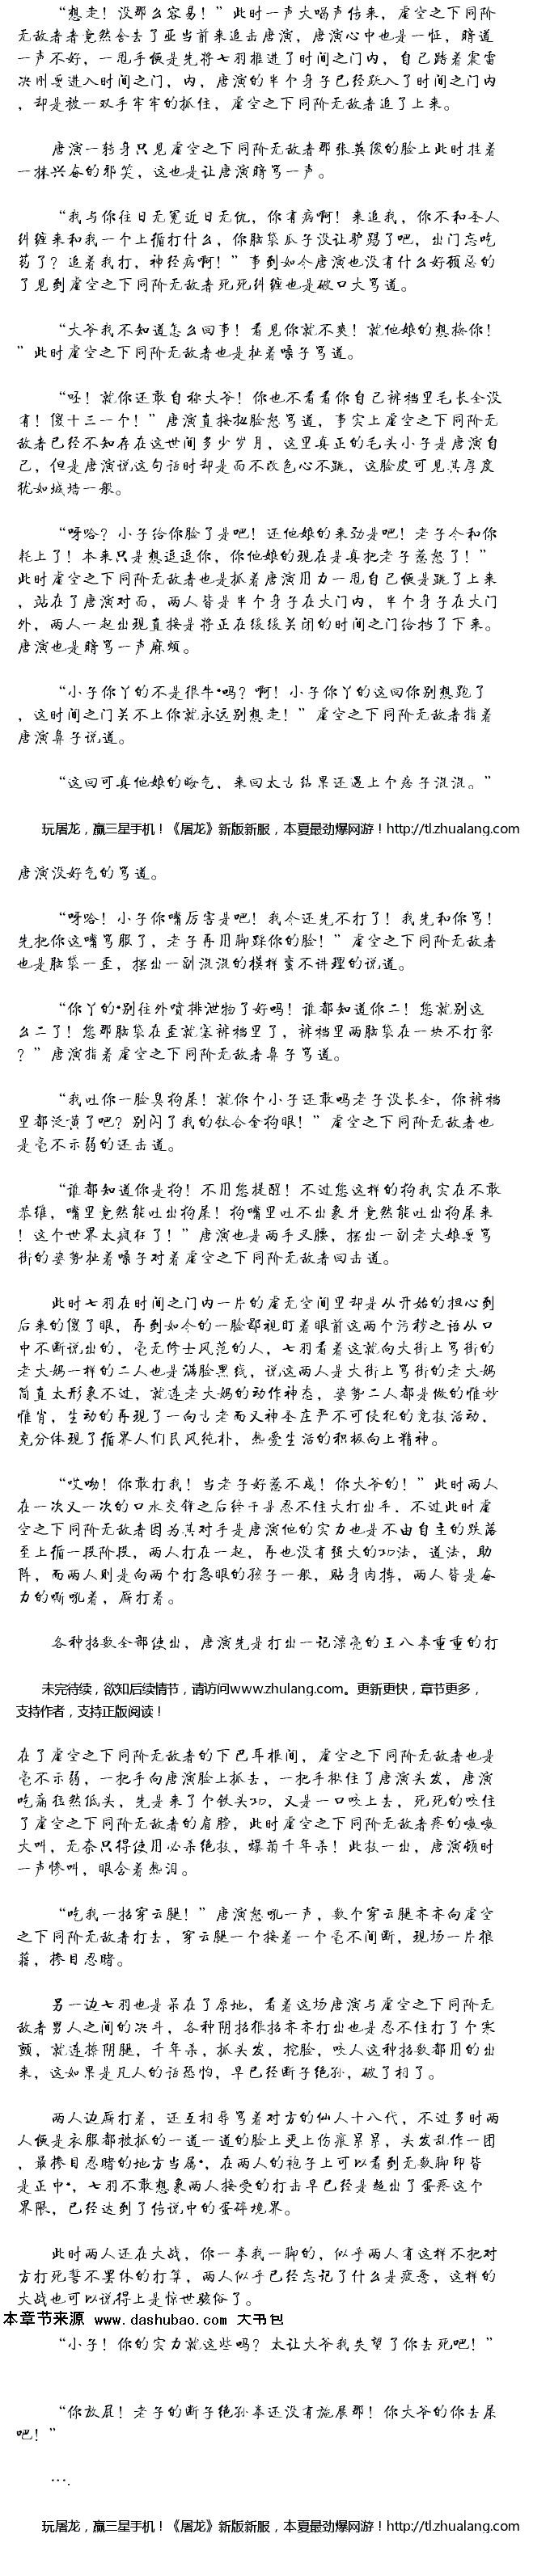 “想走！没那么容易！”此时一声大喝声传来，虚空之下同阶
无敌者者竟然舍去了亚当前来追击唐演，唐演心中也是一怔，暗道
一声不好，一甩手便是先将七羽推进了时间之门内，自己踏着震雷
决刚要进入时间之门，内，唐演的半个身子已经跃入了时间之门内
，却是被一双手牢牢的抓住，虚空之下同阶无敌者追了上来。
唐演一转身只见虚空之下同阶无敌者那张英俊的脸上此时挂着
一抹兴奋的邪笑，这也是让唐演暗骂一声。
“我与你往日无冤近日无仇，你有病啊！来追我，你不和圣人
纠缠来和我一个上循打什么，你脑袋瓜子没让驴踢了吧，出门忘吃
药了？追着我打，神经病啊！”事到如今唐演也没有什么好顾忌的
了见到虚空之下同阶无敌者死死纠缠也是破口大骂道。
“大爷我不知道怎么回事！看见你就不爽！就他娘的想揍你！
”此时虚空之下同阶无敌者也是扯着嗓子骂道。
“呸！就你还敢自称大爷！你也不看看你自己裤裆里毛长全没
有！傻十三一个！”唐演直接扯脸怒骂道，事实上虚空之下同阶无
敌者已经不知存在这世间多少岁月，这里真正的毛头小子是唐演自
己，但是唐演说这句话时却是面不改色心不跳，这脸皮可见其厚度
犹如城墙一般。
“呀哈？小子给你脸了是吧！还他娘的来劲是吧！老子今和你
耗上了！本来只是想逗逗你，你他娘的现在是真把老子惹怒了！”
此时虚空之下同阶无敌者也是抓着唐演用力一甩自己便是跳了上来
，站在了唐演对面，两人皆是半个身子在大门内，半个身子在大门
外，两人一起出现直接是将正在缓缓关闭的时间之门给挡了下来。
唐演也是暗骂一声麻烦。
“小子你丫的不是很牛*吗？啊！小子你丫的这回你别想跑了
，这时间之门关不上你就永远别想走！”虚空之下同阶无敌者指着
唐演鼻子说道。
“这回可真他娘的晦气，来回太古结果还遇上个痞子混混。”
玩屠龙，赢三星手机！《屠龙》新版新服，本夏最劲爆网游！http://tl.zhualang.com
唐演没好气的骂道。
“呀哈！小子你嘴厉害是吧！我今还先不打了！我先和你骂！
先把你这嘴骂服了，老子再用脚踩你的脸！”虚空之下同阶无敌者
也是脑袋一歪，摆出一副混混的模样蛮不讲理的说道。
“你丫的*别往外喷排泄物了好吗！谁都知道你二！您就别这
么二了！您那脑袋在歪就塞裤裆里了，裤裆里两脑袋在一块不打架
？”唐演指着虚空之下同阶无敌者鼻子骂道。
“我吐你一脸臭狗屎！就你个小子还敢吗老子没长全，你裤裆
里都泛黄了吧？别闪了我的钛合金狗眼！”虚空之下同阶无敌者也
是毫不示弱的还击道。
“谁都知道你是狗！不用您提醒！不过您这样的狗我实在不敢
恭维，嘴里竟然能吐出狗屎！狗嘴里吐不出象牙竟然能吐出狗屎来
！这个世界太疯狂了！”唐演也是两手叉腰，摆出一副老大娘要骂
街的姿势扯着嗓子对着虚空之下同阶无敌者回击道。
此时七羽在时间之门内一片的虚无空间里却是从开始的担心到
后来的傻了眼，再到如今的一脸鄙视盯着眼前这两个污秽之语从口
中不断说出的，毫无修士风范的人，七羽看着这就向大街上骂街的
老大妈一样的二人也是满脸黑线，说这两人是大街上骂街的老大妈
简直太形象不过，就连老大妈的动作神态，姿势二人都是做的惟妙
惟肖，生动的再现了一向古老而又神圣庄严不可侵犯的竞技活动，
充分体现了循界人们民风纯朴，热爱生活的积极向上精神。
“哎呦！你敢打我！当老子好惹不成！你大爷的！”此时两人
在一次又一次的口水交锋之后终于是忍不住大打出手，不过此时虚
空之下同阶无敌者因为其对手是唐演他的实力也是不由自主的跌落
至上循一段阶段，两人打在一起，再也没有强大的功法，道法，助
阵，而两人则是向两个打急眼的孩子一般，贴身肉搏，两人皆是奋
力的嘶吼着，厮打着。
各种招数全部使出，唐演先是打出一记漂亮的王八拳重重的打
未完待续，欲知后续情节，请访问www.zhulang.com。更新更快，章节更多，
支持作者，支持正版阅读！
在了虚空之下同阶无敌者的下巴耳根间，虚空之下同阶无敌者也是
毫不示弱，一把手向唐演脸上抓去，一把手揪住了唐演头发，唐演
吃痛狂然低头，先是来了个铁头功，又是一口咬上去，死死的咬住
了虚空之下同阶无敌者的肩膀，此时虚空之下同阶无敌者疼的嗷嗷
大叫，无奈只得使用必杀绝技，爆菊千年杀！此技一出，唐演顿时
一声惨叫，眼含着热泪。
“吃我一招穿云腿！”唐演怒吼一声，数个穿云腿齐齐向虚空
之下同阶无敌者打去，穿云腿一个接着一个毫不间断，现场一片狼
藉，惨目忍睹。
另一边七羽也是呆在了原地，看着这场唐演与虚空之下同阶无
敌者男人之间的决斗，各种阴招狠招齐齐打出也是忍不住打了个寒
颤，就连撩阴腿，千年杀，抓头发，挖脸，咬人这种招数都用的出
来，这如果是凡人的话恐怕，早已经断子绝孙，破了相了。
两人边厮打着，还互相辱骂着对方的仙人十八代，不过多时两
人便是衣服都被抓的一道一道的脸上更上伤痕累累，头发乱作一团
，最惨目忍睹的地方当属*，在两人的袍子上可以看到无数脚印皆
是正中*，七羽不敢想象两人接受的打击早已经是超出了蛋疼这个
界限，已经达到了传说中的蛋碎境界。
此时两人还在大战，你一拳我一脚的，似乎两人有这样不把对
方打死誓不罢休的打算，两人似乎已经忘记了什么是疲惫，这样的
大战也可以说得上是惊世骇俗了。
本章节来源 www.dashubao.com 大书包
“小子！你的实力就这些吗？太让大爷我失望了你去死吧！”
“你放屁！老子的断子绝孙拳还没有施展那！你大爷的你去屎
吧！”
….
玩屠龙，赢三星手机！《屠龙》新版新服，本夏最劲爆网游！http://tl.zhualang.com